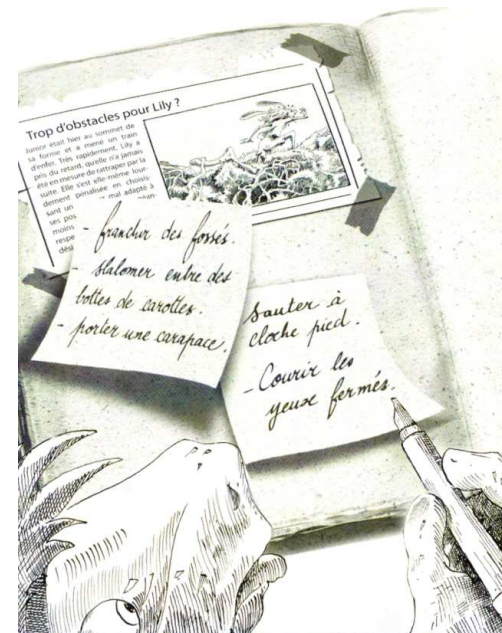 Trop d'obstacles pour Lily ?
Junior était hier au sommet de
sa forme et a mené un train
d'enfer. Très rapidement, Lily a
pris du retard, qu'elle n'a jamais
été en mesure de rattraper par la
suite. Elle s'est elle-même lour-
dement pénalisée en choisis
sant un mal adapté à
ses pos
moins
respe
dés
- franchir des fossés.
- slalomer entre des
bottes de carottes.
- porter une carapace.
Sauter à
cloche pied.
- Courir les
yeux fermés.